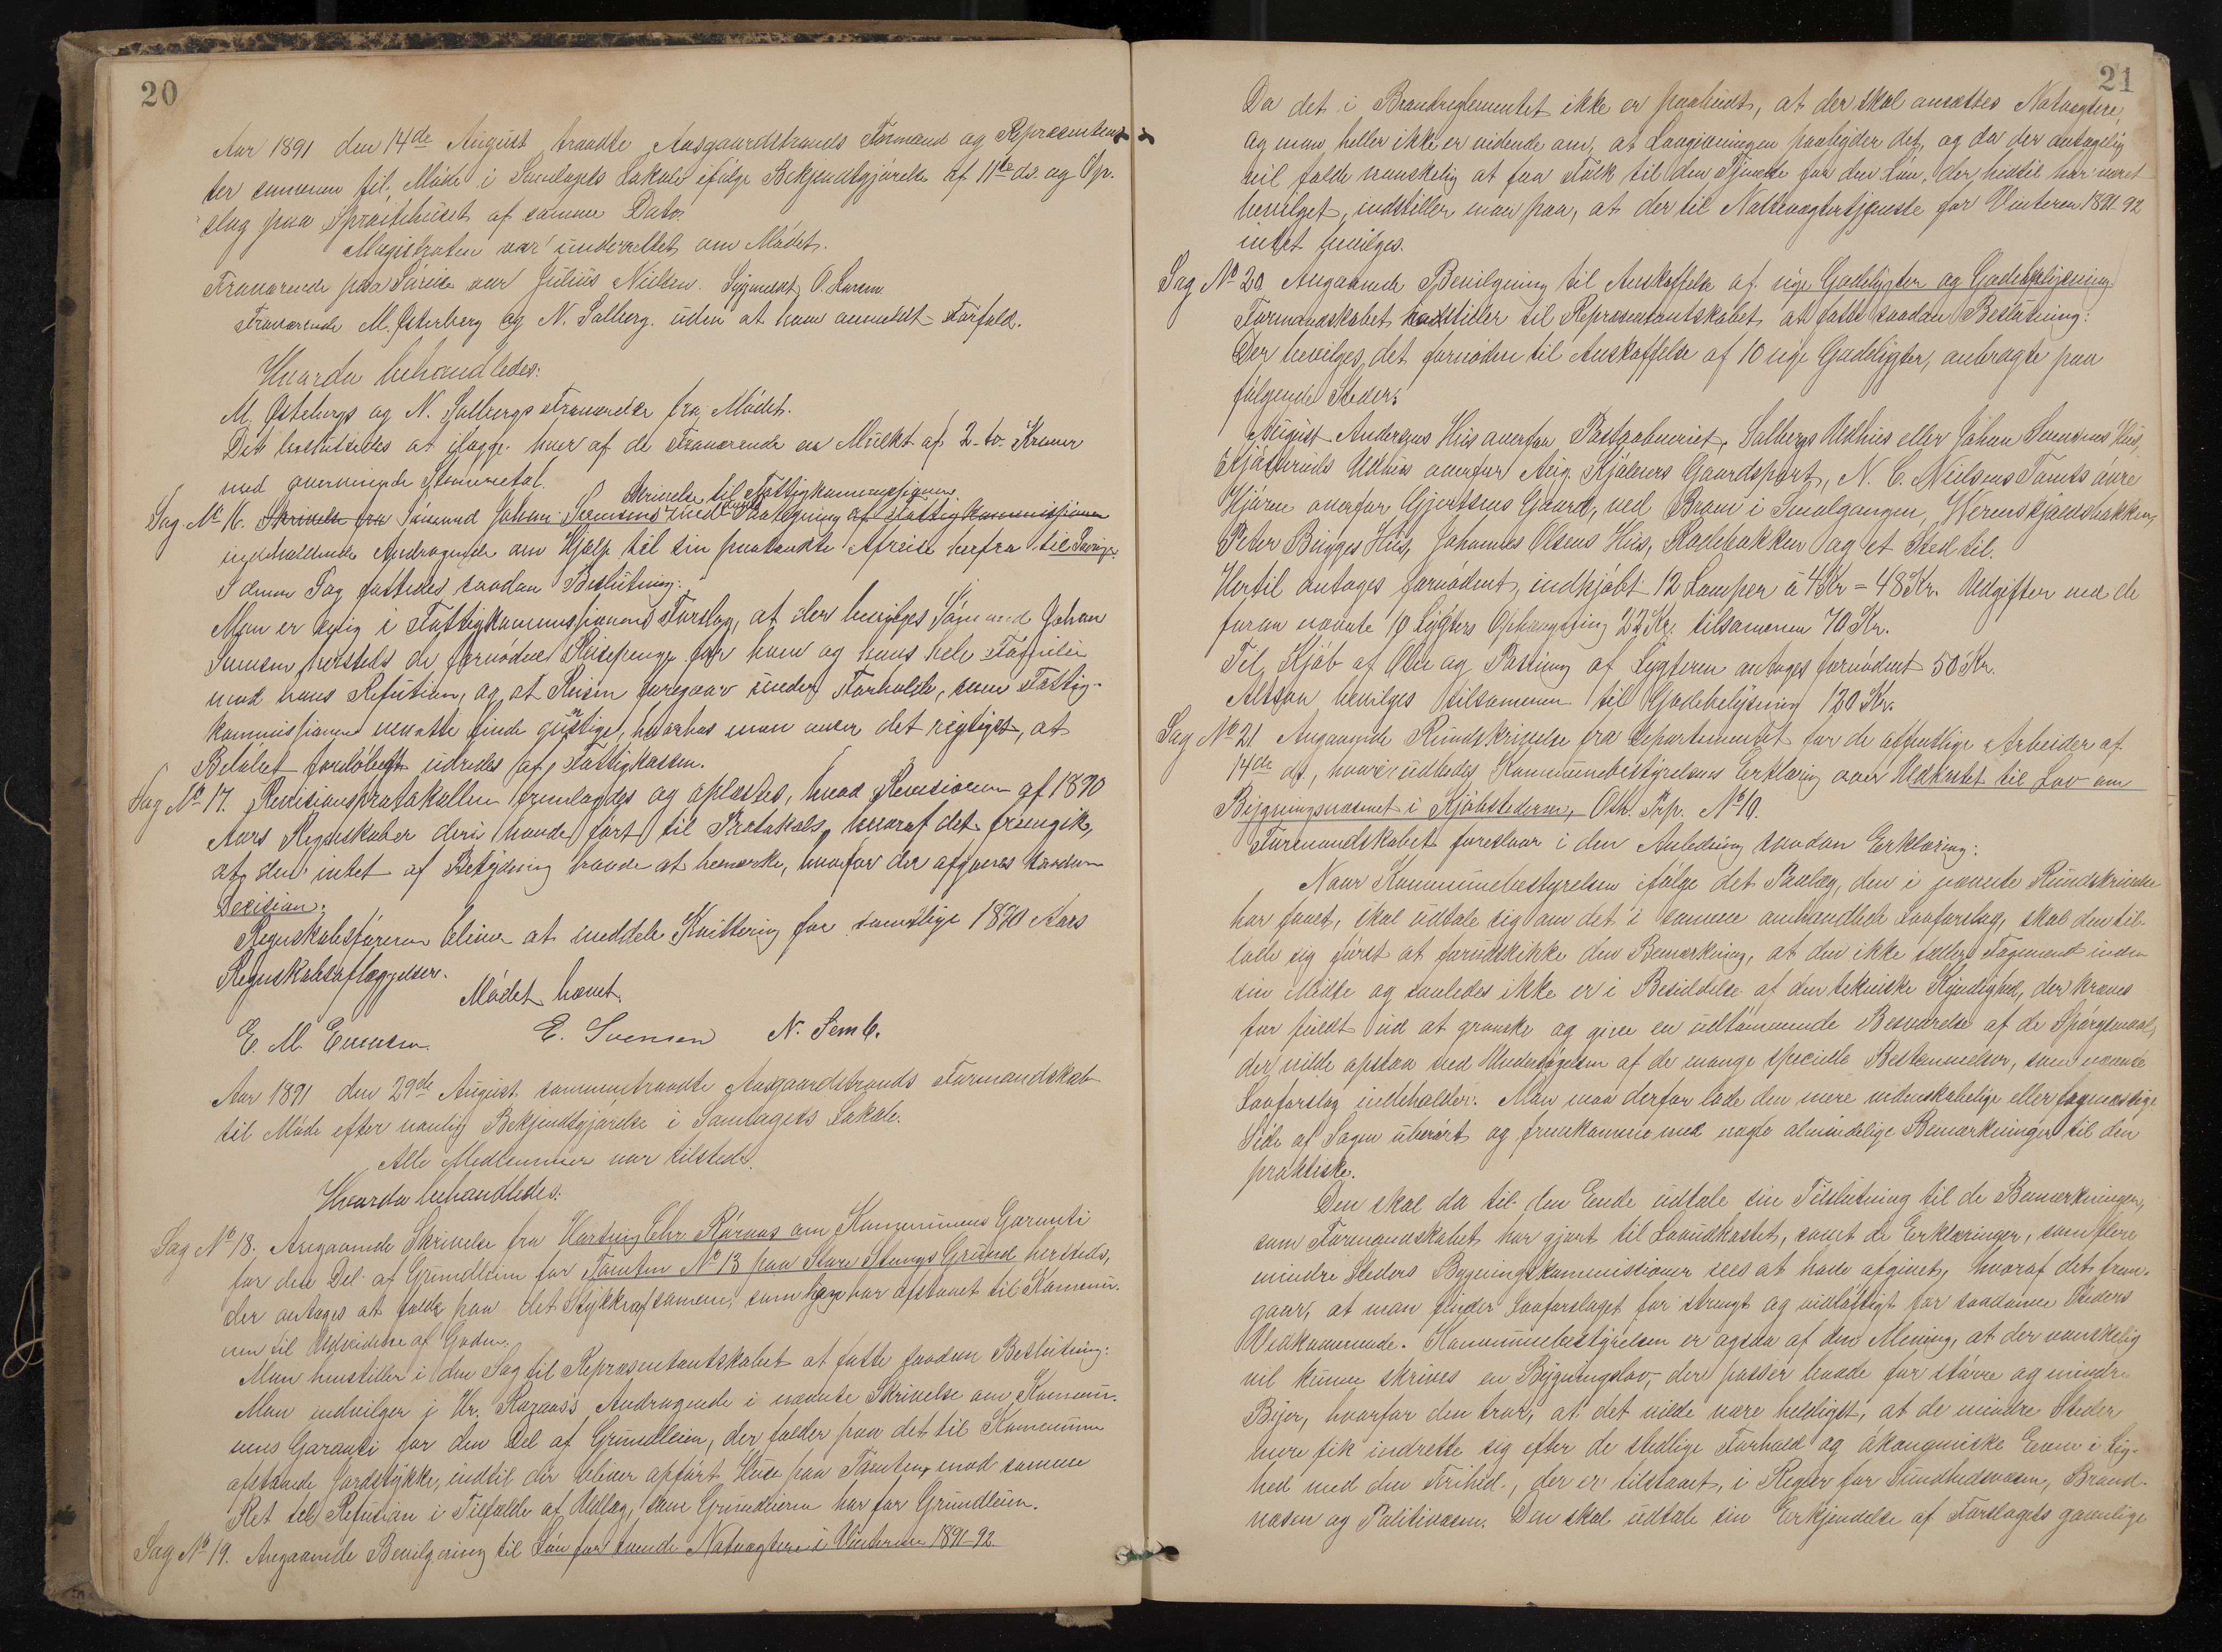 20
Aar 1891 den 14de August traadte Aasgaardstrands Formand og Repræsentan-
ter sammen til Møde i Samlagets Lokale ifølge Bekjendtgjørelse af 11te ds. og Op-
slag paa Sprøitehuset af samme Dato.
Magistraten var underrettet om Mødet.
Fraværende paa Søreise var Julius Nielsen. Sygmeldt O. Larsen.
Fraværende M. Østerberg og N. Solberg uden at have anmeldt Forfald.
Hvorda behandledes:
M. Østebergs og N. Solbergs Fraværelse fra Mødet.
Det besluttedes at ilægge hver af de Fraværende en Mulkt af 2 – to – Kroner
med overveiende Stemmetal.
Skrivelse til Fattigkommissionen
Sag No 16. Skrivelse fra Sømand Johan Svensens med Paategning af Fattigkommissionen
indeholdende Andragende om Hjælp til sin paatænkte Afreise herfra til Sverige.
I denne Sag fattedes saadan Beslutning:
Man er enig i Fattigkommissionens Forslag, at der bevilges Sømand Johan
Svensen hersteds de fornødne Reisepenge for ham og hans hele Familie
mod hans Refution, og at Reisen foregaar under Forholde, som Fattig-
kommissionen maatte finde gunstige, hvorhos man anser det rigtigst, at
Beløbet forløbigt udredes af Fattigkassen.
Sag No 17. Revisionsprotokollen fremlagdes og oplæstes, hvad Revisionen af 1890
Aars Regnskaber deri havde ført til Protokols, hvoraf det fremgik,
at den intet af Betydning havde at bemærke, hvorfor der afgaves saadan
Decision:
Regnskabsføreren bliver at meddele Kvittering for samtlige 1890 Aars
Regnskabsaflæggelser.
Mødet hævet.
E. M. Evensen. E. Svensen N. Semb.
Aar 1891 den 29de August sammentraadte Aasgaardstrands Formandskab
til Møde efter vanlig Bekjendtgjørelse i Samlagets Lokale.
Alle Medlemmer var tilstede.
Hvorda behandledes:
Sag No 18. Angaaende Skrivelse fra Hartvig Chr. Røraas om Kommunens Garanti
for den Del af Grundleien for Tomten No 13 paa Store Stangs Grund hersteds,
der antages at falde paa det Stykke af samme, som han har afstaaet til Kommu-
nen til Udvidelse af Gaden.
Man henstiller i den Sag til Repræsentantskabet at fatte saadan Beslutning:
Man indvilger i Hr. Røraas's Andragende i nævnte Skrivelse om Kommu-
nens Garanti for den Del af Grundleien, der falder paa det til Kommunen
afstaaede Jordstykke, indtil der bliver opført Huse paa Tomten mod samme
Ret til Refusion i Tilfælde af Udlæg, som Grundeieren har for Grundleien.
Sag No 19. Angaaende Bevilgning til Løn for tvende Natvægtere i Vinteren 1891–92.
21
Da det i Brandreglementet ikke er paabudt, at der skal ansættes Natvægtere,
og man heller ikke er vidende om, at Lovgivningen paabyder det, og da der antagelig
vil falde vanskelig at faa Folk til den Tjeneste for den Løn, der hidtil har været
bevilget, indstiller man paa, at der til Natvægtertjeneste for Vinteren 1891–92
intet bevilges.
Sag No 20. Angaaende Bevilgning til Anskaffelse af nye Gadelygter og Gadebelysning.
Formandskabet indstiller til Repræsentantskabet at fatte saadan Beslutning:
Der bevilges det fornødne til Anskaffelse af 10 nye Gadelygter, anbragte paa
følgende Steder:
August Andersens Hus overfor Postaabneriet, Solbergs Udhus eller Johan Svensens Hus,
Kjøsteruds Udhus overfor Aug. Kjølners Gaardsport, N. C. Nielsens Tomts øvre
Hjørne overfor Gjertsens Gaard, ved Broen i Smalgangen, Werenskjøldsbakken,
Peter Bugges Hus, Johannes Olsens Hus, Kodebakken og et Sted til.
Hertil antages fornødent, indkjøbt 12 Lamper à 4 Kr = 48 Kr. Udgifter ved de
foran nævnte 10 Lygters Ophængning 22 Kr. tilsammen 70 Kr.
Til Kjøb af Olie og Pasning af Lygterne antages fornødent 50 Kr.
Altsaa bevilges tilsammen til Gadebelysning 120 Kr.
Sag No 21 Angaaende Rundskrivelse fra Departementet for de offentlige Arbeider af
14de ds., hvori udbedes Kommunebestyrelsens Erklæring over Udkastet til Lov om
Bygningsvæsenet i Kjøbstederne, Oth. Prp. No 10.
Formandskabet foreslaar i den Anledning saadan Erklæring:
Naar Kommunebestyrelsen ifølge det Paalæg, den i nævnte Rundskrivelse
har faaet, skal udtale sig om det i samme omhandlede Lovforslag, skal den til-
lade sig først at forudskikke den Bemærkning, at den ikke tæller Fagmænd inden
sin Midte og saaledes ikke er i Besiddelse af den tekniske Kyndighed, der kræves
for fuldt ud at granske og give en udtømmende Besvarelse af de Spørgsmaal,
der vilde opstaa ved Undersøgelsen af de mange specielle Bestemmelser, som nævnte
Lovforslag indeholder. Man maa derfor lade den mere videnskabelige eller fagmæssige
Side af Sagen uberørt og fremkomme med nogle almindelige Bemærkninger til den
praktiske.
Den skal da til den Ende udtale sin Tilslutning til de Bemærkninger,
som Formandskabet har gjort til Lovudkastet, samt de Erklæringer, som flere
mindre Steders Bygningskommissioner sees at have afgivet, hvoraf det frem-
gaar, at man finder Lovforslaget for strengt og vidløftigt for saadanne Steders
Vedkommende. Kommunebestyrelsen er ogsaa af den Mening, at der vanskelig
vil kunne skrives en Bygningslov, der passer baade for større og mindre
Byer, hvorfor den tror, at det vilde være heldigst, at de mindre Steder
mere fik indrette sig efter de stedlige Forhold og økonomiske Evne i Lig-
hed med den Frihed, der er tilstaaet, i Regler for Sundhedsvæsen, Brand-
væsen og Politivæsen. Den skal udtale sin Erkjendelse af Forslagets gavnlige